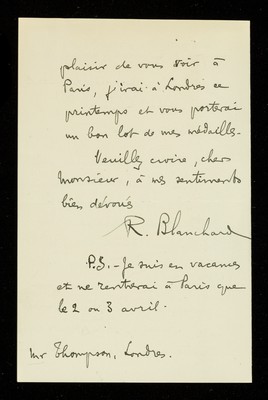 plaisir de vous voir à
Paris, j'irai à Londres ce
printemps et vous porterai
un bon lot de mes médailles.
Veuillez croire, cher
Monsieur, à mes sentiments
bien dévoués
R. Blanchard
P.S. - Je suis en vacances
et ne rentrerai à Paris que
le 2 ou 3 avril.
Mr Thompson, Londres.